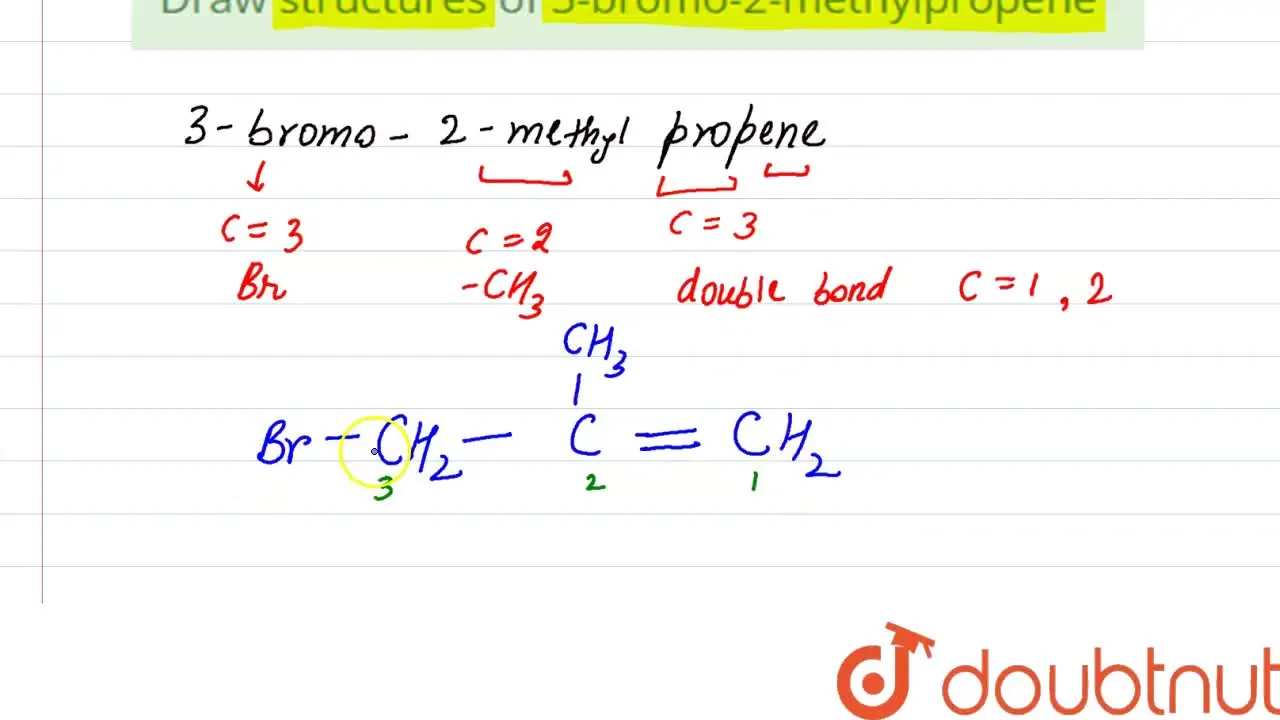 Draw structures of 3-bromo-2-methylpropene
3 - bromo - 2 - methyl propene
C = 3 C = 2 C = 3
Br - CH3 double bond C = 1 , 2
CH3
Br - CH2 - C = CH2
3 2 1
doubtnut